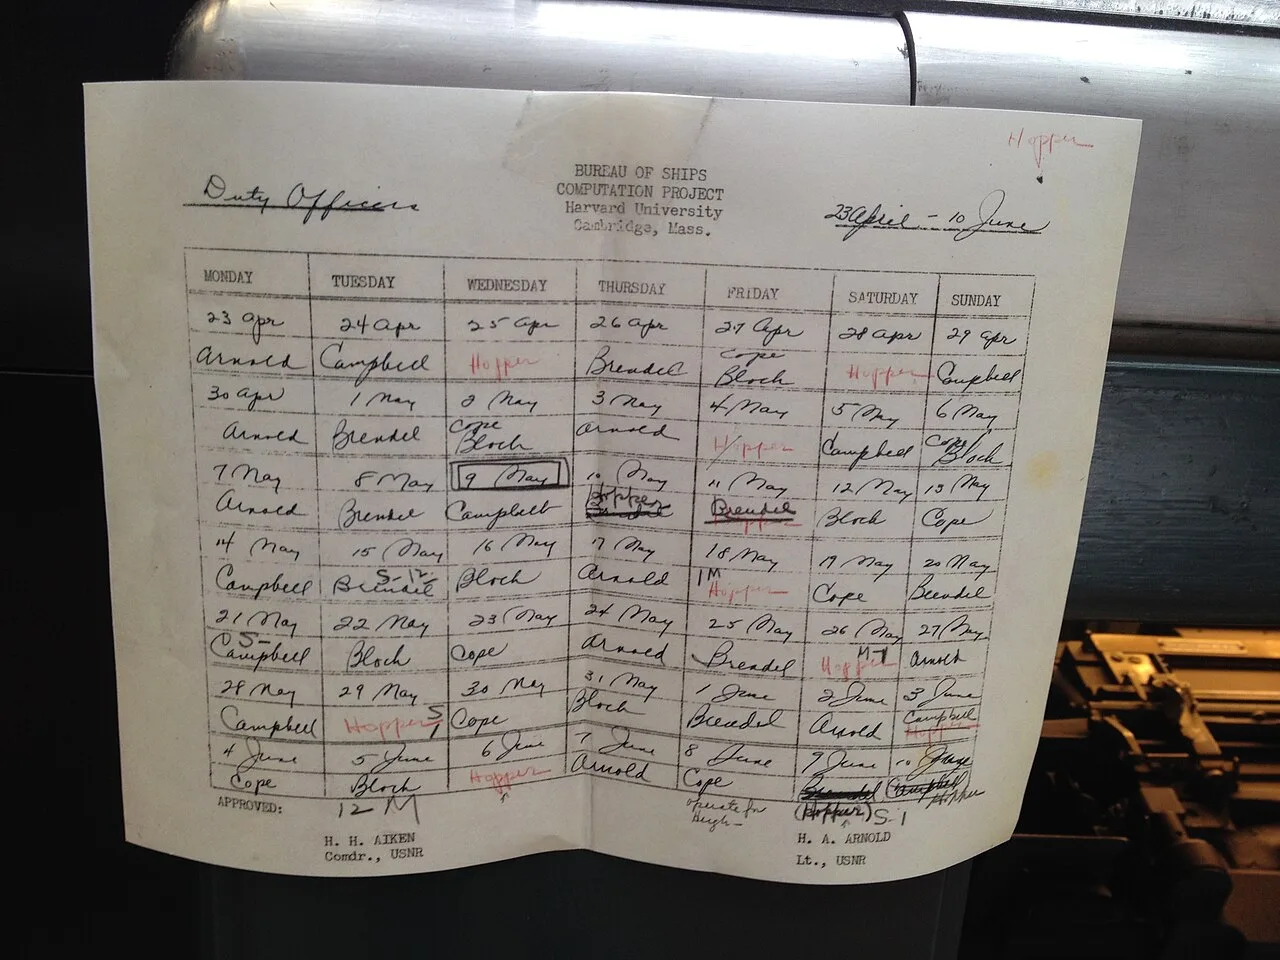 Hopper
BUREAU OF SHIPS
COMPUTATION PROJECT
Harvard University
Cambridge, Mass.
Duty Officers
23 April - 10 June
MONDAY TUESDAY WEDNESDAY THURSDAY FRIDAY SATURDAY SUNDAY
23 Apr 24 Apr 25 Apr 26 Apr 27 Apr 28 Apr 29 Apr
Cope
Arnold Campbell Hopper Brendel Bloch Hopper Campbell
30 Apr 1 May 2 May 3 May 4 May 5 May 6 May
Cope Cope
Arnold Brendel Bloch Arnold Hopper Campbell Bloch
7 May 8 May 9 May 10 May 11 May 12 May 13 May
Hopper
Arnold Brendel Campbell Brendel Brendel Bloch Cope
Hopper
14 May 15 May 16 May 17 May 18 May 19 May 20 May
S-12 1M
Campbell Brendel Bloch Arnold Hopper Cope Brendel
21 May 22 May 23 May 24 May 25 May 26 May 27 May
S-
Campbell Bloch Cope Arnold Brendel Hopper Arnold
28 May 29 May 30 May 31 May 1 June 2 June 3 June
Campbell Hopper Cope Bloch Brendel Arnold Campbell
Hopper
4 June 5 June 6 June 7 June 8 June 9 June 10 June
Cope Bloch Hopper Arnold Cope Brendel Campbell
(Hopper) S-1 Hopper
APPROVED: 12 M
operate for
H. H. AIKEN H. A. ARNOLD
Comdr., USNR Lt., USNR